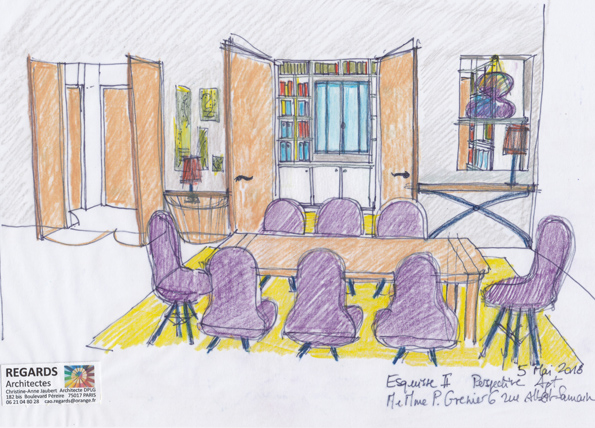 REGARDS
Architectes
Christine-Anne Jaubert Architecte DPLG
182 bis Boulevard Péreire 75017 PARIS
06 21 04 80 28 cao.regards@orange.fr
5 Mai 2018
Esquisse II Perspective Apt
M et Mme P. Grenier 6 rue Albert Samain